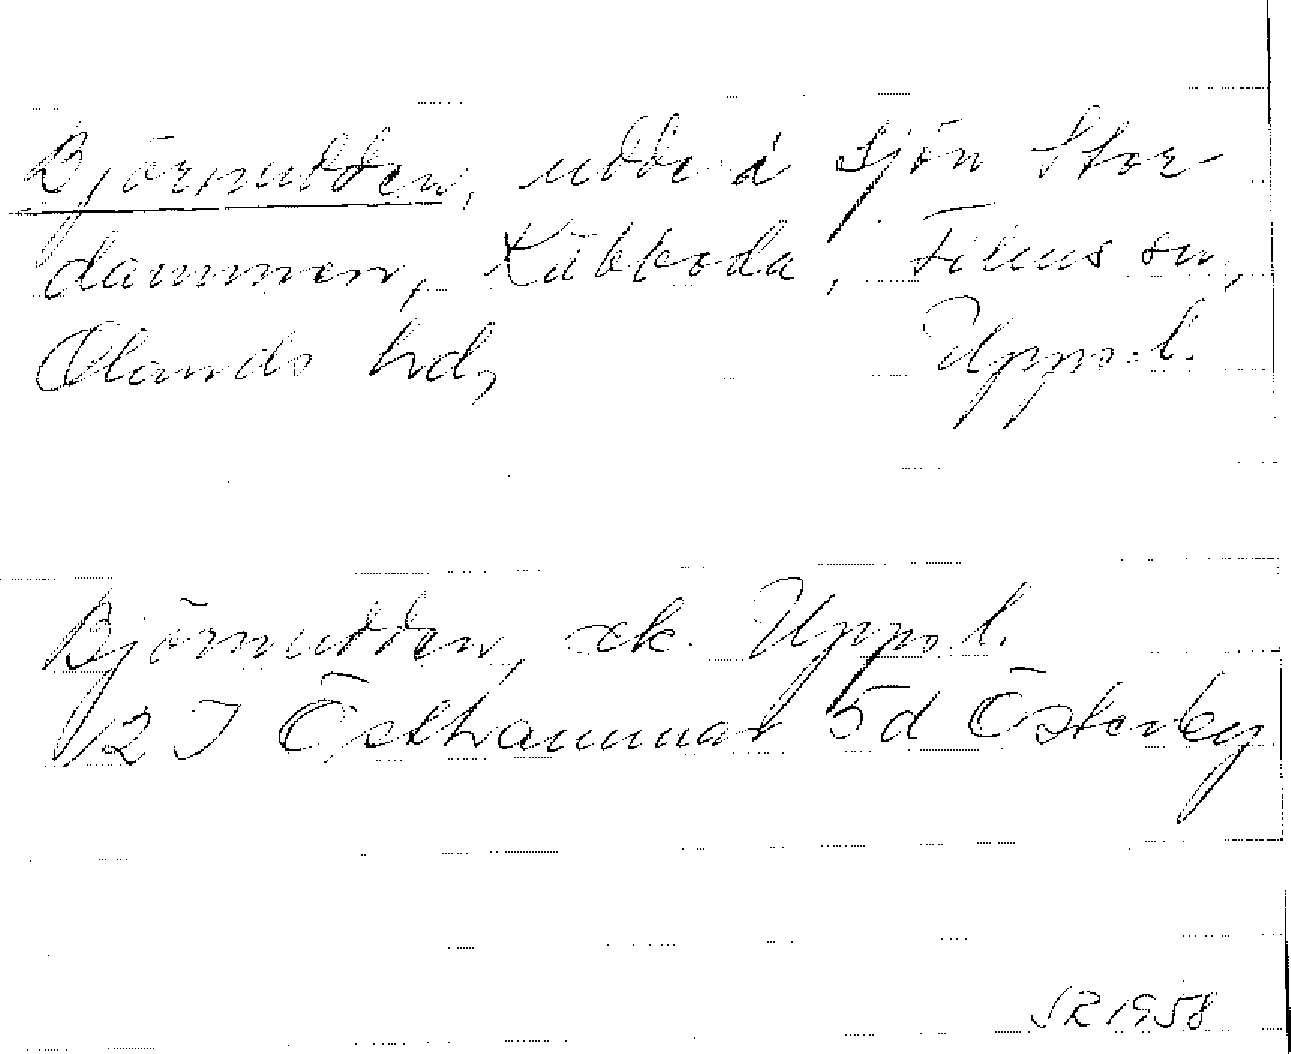 Björnudden, udde i sjön Stor
dammen, Käbboda, Films sn,
Olands hd, Uppsl.
Björnudden, ek. Uppsl.
12 I Östhammar 5d Österby
SR 1958